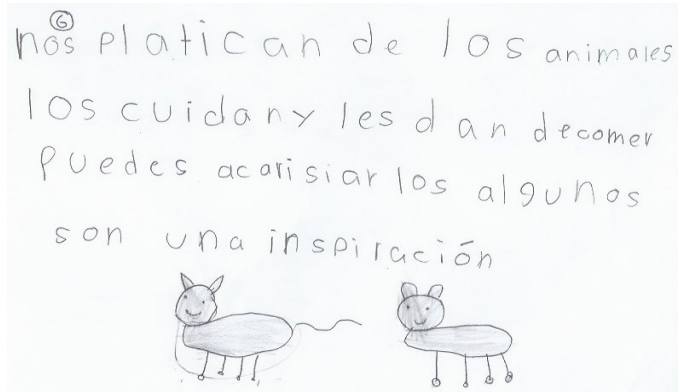 6
nos platican de los animales
los cuidany les dan decomer
puedes acarisiar los algunos
son una inspiración